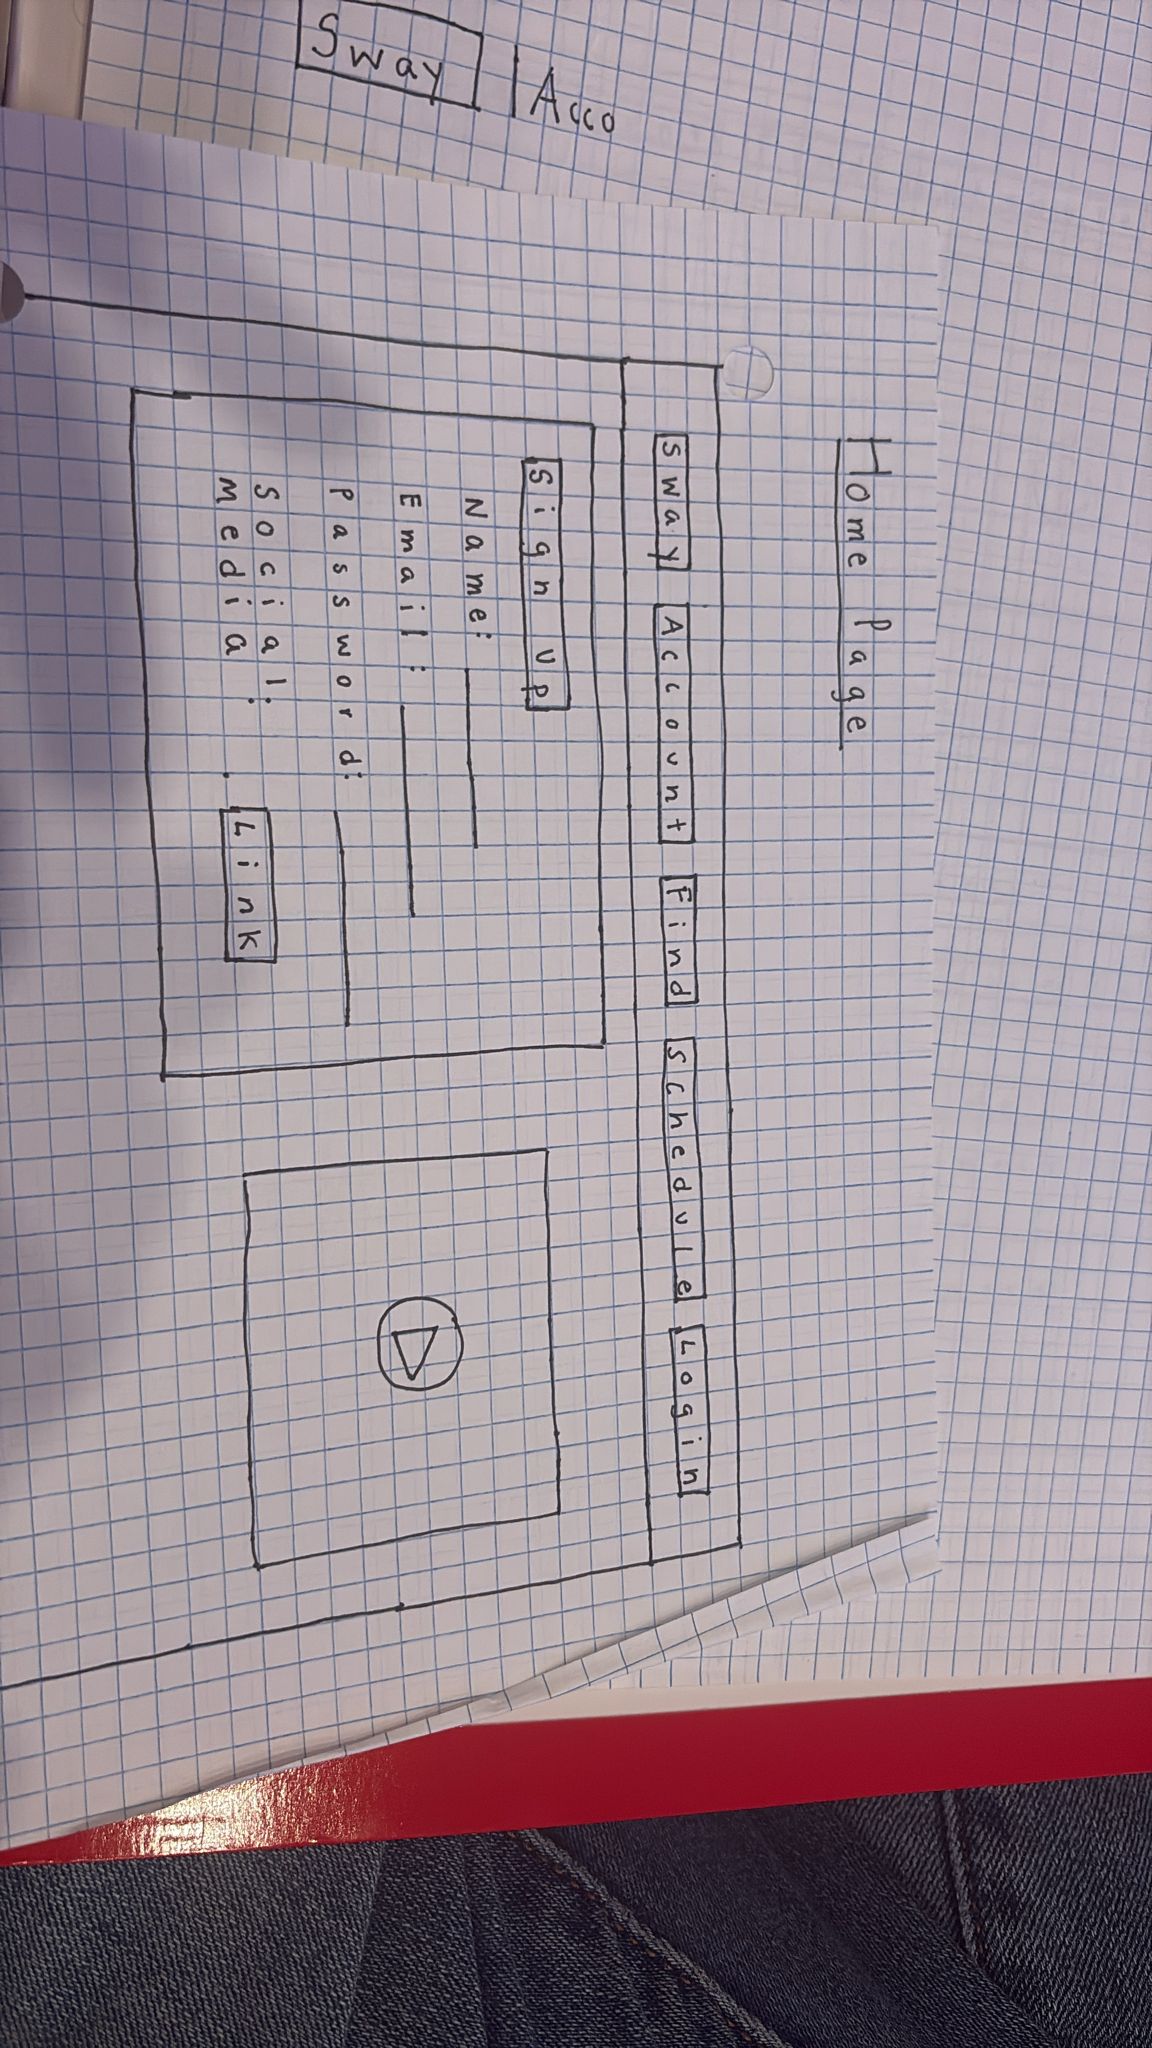 Sway | Acco
Home Page
Sway Account Find Schedule Login
Sign up
Name:
Email:
Password:
Social:
Media: Link